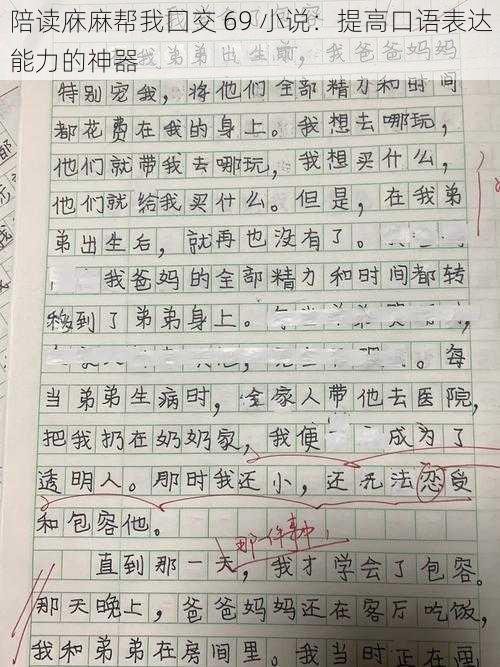 陪读庥麻帮我囗交 69 小说：提高口语表达
能力的神器
弟弟出生前，我爸爸妈妈
特别宠我，将他们全部精力和时间
都花费在我的身上。我想去哪玩，
他们就带我去哪玩，我想买什么，
他们就给我买什么。但是，在我弟
弟出生后，就再也没有了。
我爸妈的全部精力和时间都转
移到了弟弟身上。
每
当弟弟生病时，全家人带他去医院，
把我扔在奶奶家，我便成为了
透明人。那时我还小，还无法忍受
和包容他。
那件事中，
直到那一天，我才学会了包容。
那天晚上，爸爸妈妈还在客厅吃饭，
我和弟弟在房间里。我当时正在